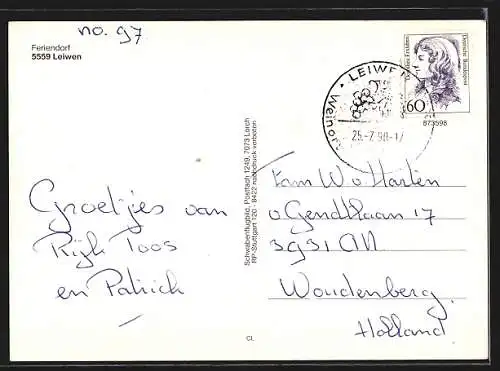 no. 97
Feriendorf
5559 Leiwen
Deutsche Bundespost
60
873598
LEIWEN
Weinort
25.-7.90-17
Schwabenflugbild, Postfach 1249, 7073 Lorch
RP-Stuttgart 120 - 8422 nachdruck verboten
Groetjes van
Rijk Toos
en Patrick
Fam W. v. Harten
v Gendtlaan 17
3931 CM
Woudenberg.
Holland
CL